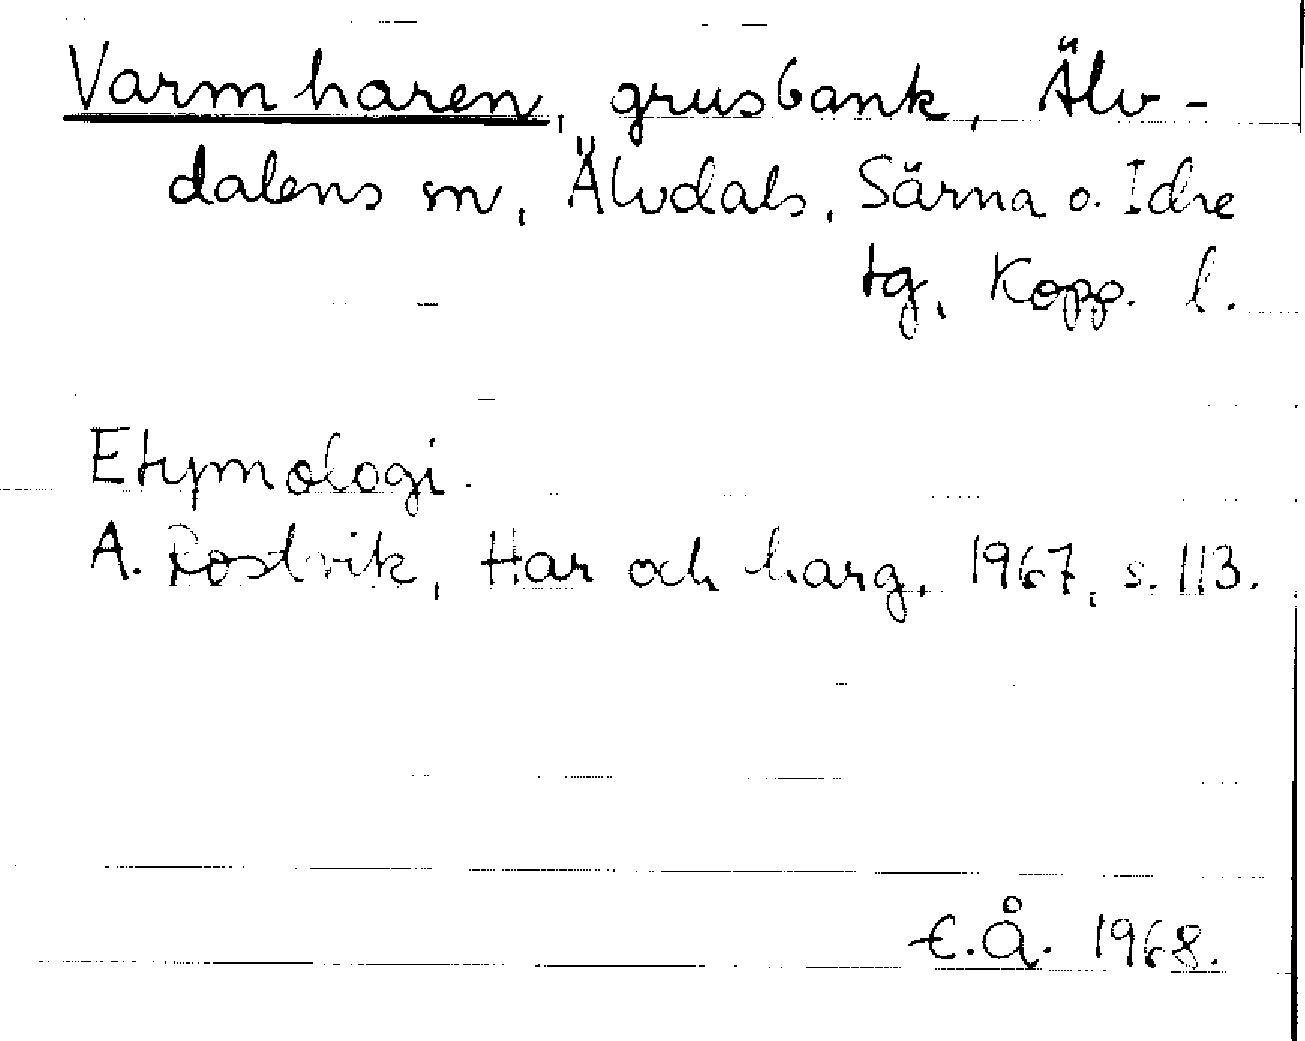 Varmharen, grusbank, Älv-
dalens sn, Älvdals, Särna o. Idre
tg, Kopp. l.
Etymologi.
A. Rostvik, Har och harg, 1967, s. 113.
E.Å. 1968.